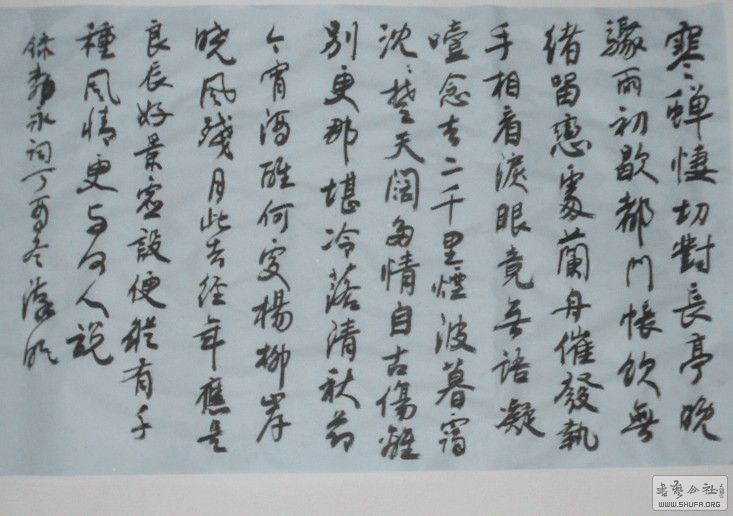 寒蟬悽切對長亭晚
驟雨初歇都門帳飲無
緒留戀處蘭舟催發執
手相看淚眼竟無語凝
噎念去々千里煙波暮靄
沈々楚天闊多情自古傷離
別更那堪冷落清秋節
今宵酒醒何處楊柳岸
曉風殘月此去經年應是
良辰好景虛設便縱有千
種風情更與何人說
柳永詞丁酉冬
書藝公社
WWW.SHUFA.ORG